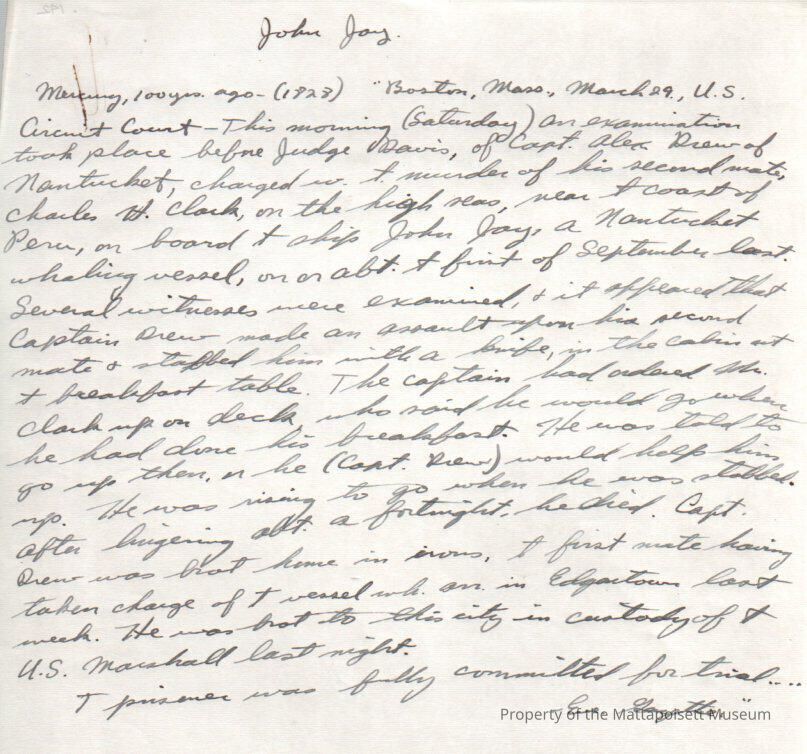 John Jay.
Mercury, 100 yrs. ago - (1828) "Boston, Mass., March 29, U.S.
Circuit Court - This morning (Saturday) an examination
took place before Judge Davis, of Capt. Alex Drew of
Nantucket, charged w. t murder of his second mate,
Charles H. Clark, on the high seas, near t coast of
Peru, on board t ship John Jay, a Nantucket
whaling vessel, on or abt. t first of September last.
Several witnesses were examined, & it appeared that
Captain Drew made an assault upon his second
mate & stabbed him with a knife, in the cabin at
t breakfast table. The captain had ordered Mr.
Clark up on deck, who said he would go when
he had done his breakfast. He was told to
go up then, or he (Capt. Drew) would help him
up. He was rising to go when he was stabbed.
After lingering abt. a fortnight, he died. Capt.
Drew was brot home in irons, t first mate having
taken charge of t vessel wh. arr. in Edgartown last
week. He was brot to this city in custody of t
U.S. Marshall last night.
T prisoner was fully committed for trial....
Property of the Mattapoisett Museum